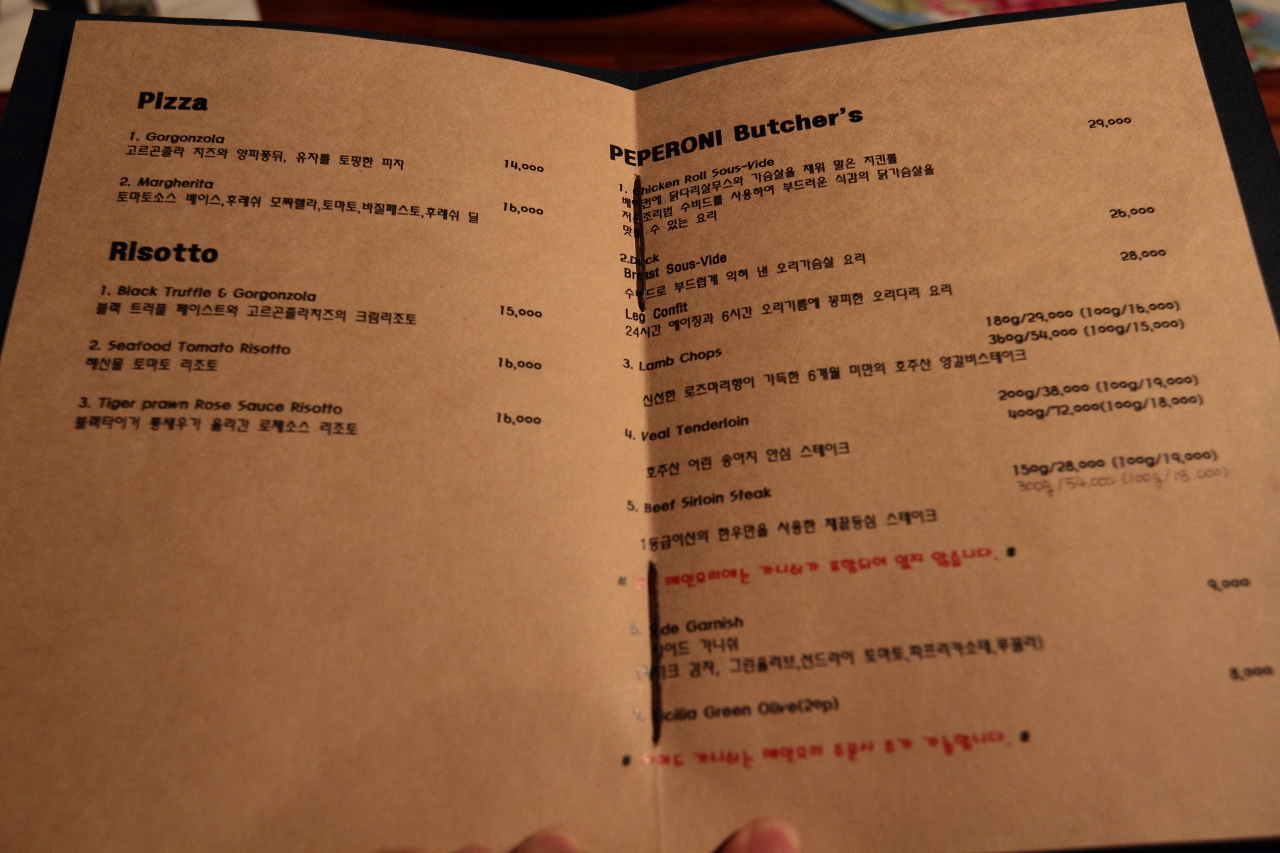 Pizza
1. Gorgonzola
고르곤졸라 치즈와 양파퐁뒤, 유자를 토핑한 피자
14,000
2. Margherita
토마토소스 베이스,후레쉬 모짜렐라,토마토,바질페스토,후레쉬 딜
16,000
Risotto
1. Black Truffle & Gorgonzola
블랙 트러플 페이스트와 고르곤졸라치즈의 크림리조토
15,000
2. Seafood Tomato Risotto
해산물 토마토 리조토
16,000
3. Tiger prawn Rose Sauce Risotto
블랙타이거 통새우가 올라간 로제소스 리조토
16,000
PEPERONI Butcher's
29,000
1. Chicken Roll Sous-Vide
베이컨에 닭다리살무스와 가슴살을 채워 말은 치킨롤
저온조리법 수비드를 사용하여 부드러운 식감의 닭가슴살을
맛볼 수 있는 요리
26,000
2.Duck
Breast Sous-Vide
수비드로 부드럽게 익혀 낸 오리가슴살 요리
28,000
Leg Confit
24시간 에이징과 6시간 오리기름에 꽁피한 오리다리 요리
180g/29,000 (100g/16,000)
360g/54,000 (100g/15,000)
3. Lamb Chops
신선한 로즈마리향이 가득한 6개월 미만의 호주산 양갈비스테이크
200g/38,000 (100g/19,000)
400g/72,000(100g/18,000)
4. Veal Tenderloin
호주산 어린 송아지 안심 스테이크
150g/28,000 (100g/19,000)
300g/54,000 (100g/18,000)
5. Beef Sirloin Steak
1등급이상의 한우만을 사용한 채끝등심 스테이크
메인요리에는 가니쉬가 포함되어 있지 않습니다.
9,000
Side Garnish
사이드 가니쉬
감자, 그린올리브,선드라이 토마토,파프리카소테,루꼴라)
8,000
Sicilia Green Olive(20p)
사이드 가니쉬는 메인요리 주문시 추가 가능합니다.